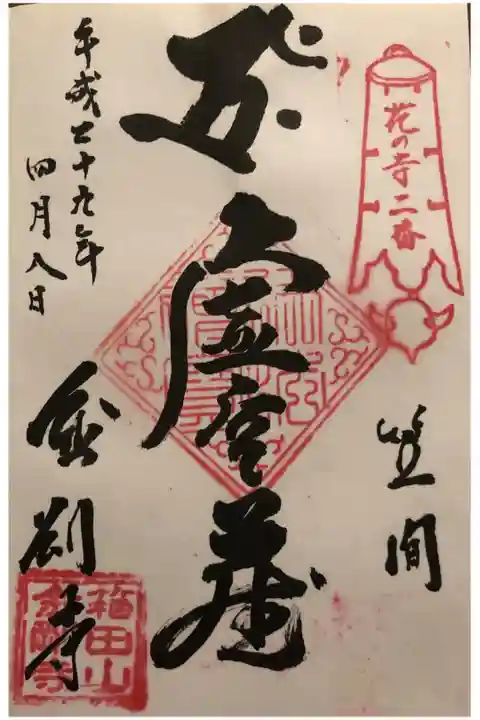 花の寺二番
笠間
虚空蔵
平成二十九年
四月八日
金剛寺
箱田山
金剛寺